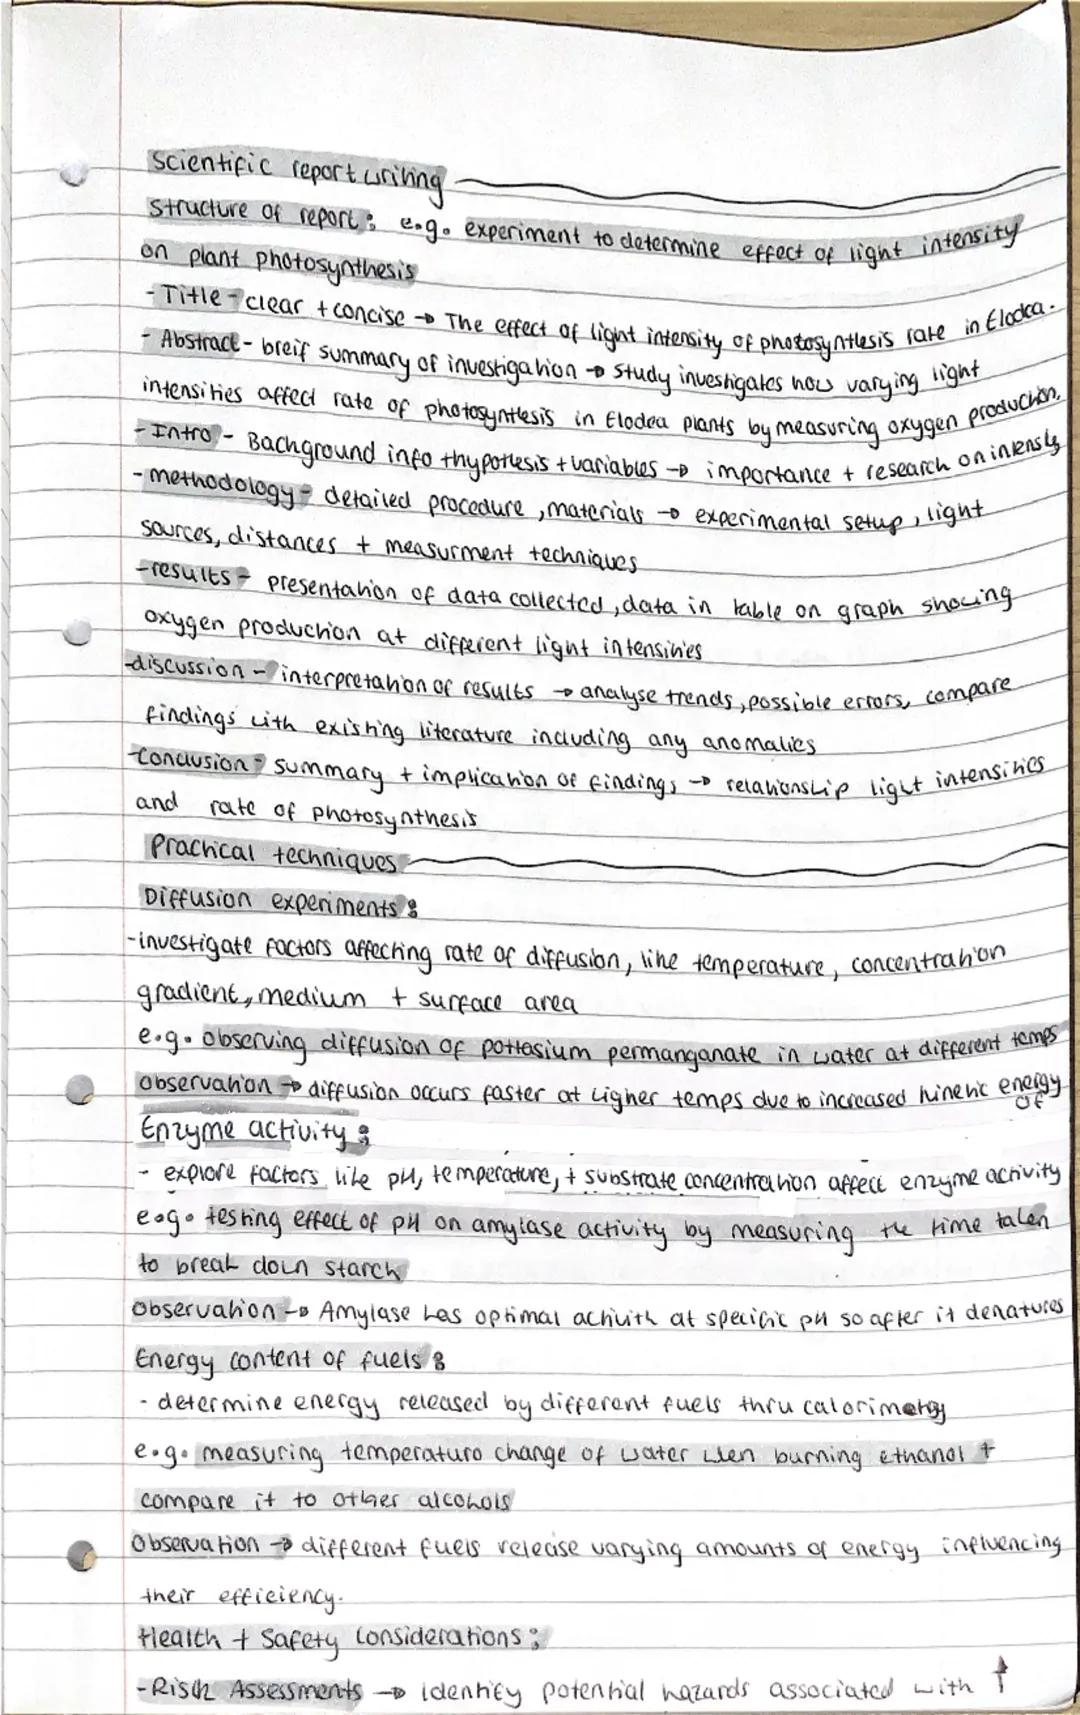 Scientific report writing
Structure of report: e.g. experiment to determine effect of light intensity
on plant photosynthesis
- Title - clear + concise → The effect of light intensity of photosyntlesis rate in Elodea.
- Abstract - breif summary of investigation → Study investigates how varying light
intensities affect rate of photosyntlesis in Elodea plants by measuring oxygen production.
- Intro - Background info + hypotlesis + variables → importance + research on intensity
- methodology - detailed procedure, materials → experimental setup, light
sources, distances + measurment techniques
- results - presentation of data collected, data in table on graph showing
oxygen production at different light intensities
- discussion - interpretation of results → analyse trends, possible errors, compare
findings with existing literature including any anomalies
- Conclusion - summary + implication of findings → relationship light intensities
and rate of photosynthesis
Practical techniques
Diffusion experiments:
- investigate factors affecting rate of diffusion, like temperature, concentration
gradient, medium + surface area
e.g. observing diffusion of pottasium permanganate in water at different temps
observation → diffusion occurs faster at higher temps due to increased kinetic energy
of
Enzyme activity:
- explore factors like pH, temperature, + substrate concentration affect enzyme activity
e.g. testing effect of pH on amylase activity by measuring the time taken
to break down starch
observation → Amylase has optimal activith at specific pH so after it denatures
Energy content of fuels:
- determine energy released by different fuels thru calorimetry
e.g. measuring temperature change of water when burning ethanol +
compare it to other alcohols
Observation → different fuels release varying amounts of energy influencing
their efficiency.
Health + Safety Considerations:
- Risk Assessments → identify potential hazards associated with ↑